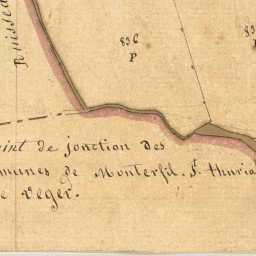 Ruissea
836
P
83
P
int de jonction des
munes de Monterfil. St. Thuria
e Veger.